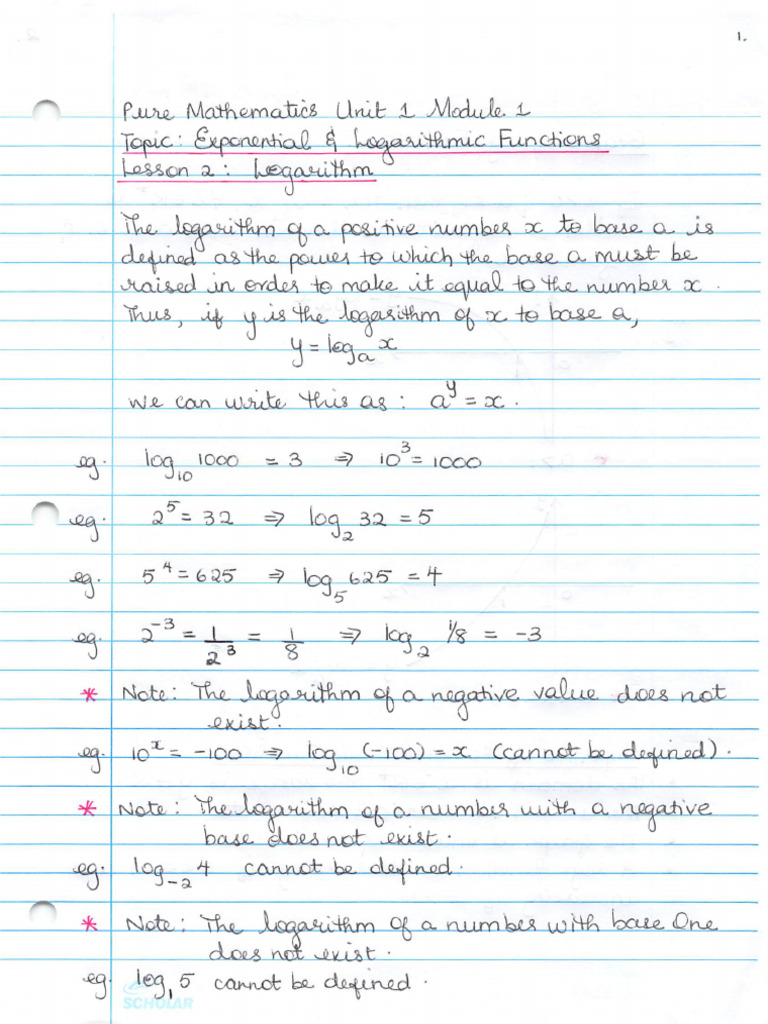 1.
Pure Mathematics Unit 1 Module 1
Topic: Exponential & Logarithmic Functions
Lesson 2: Logarithm
The logarithm of a positive number x to base a is
defined as the power to which the base a must be
raised in order to make it equal to the number x.
Thus, if y is the logarithm of x to base a,
y = logₐ x
We can write this as: a^y = x.
eg. log₁₀ 1000 = 3 ⇒ 10³ = 1000
eg. 2⁵ = 32 ⇒ log₂ 32 = 5
eg. 5⁴ = 625 ⇒ log₅ 625 = 4
eg. 2⁻³ = 1/2³ = 1/8 ⇒ log₂ 1/8 = -3
* Note: The logarithm of a negative value does not
exist.
eg. 10^x = -100 ⇒ log₁₀ (-100) = x (cannot be defined).
* Note: The logarithm of a number with a negative
base does not exist.
eg. log₋₂ 4 cannot be defined.
* Note: The logarithm of a number with base One
does not exist.
eg. log₁ 5 cannot be defined.
SCHOLAR